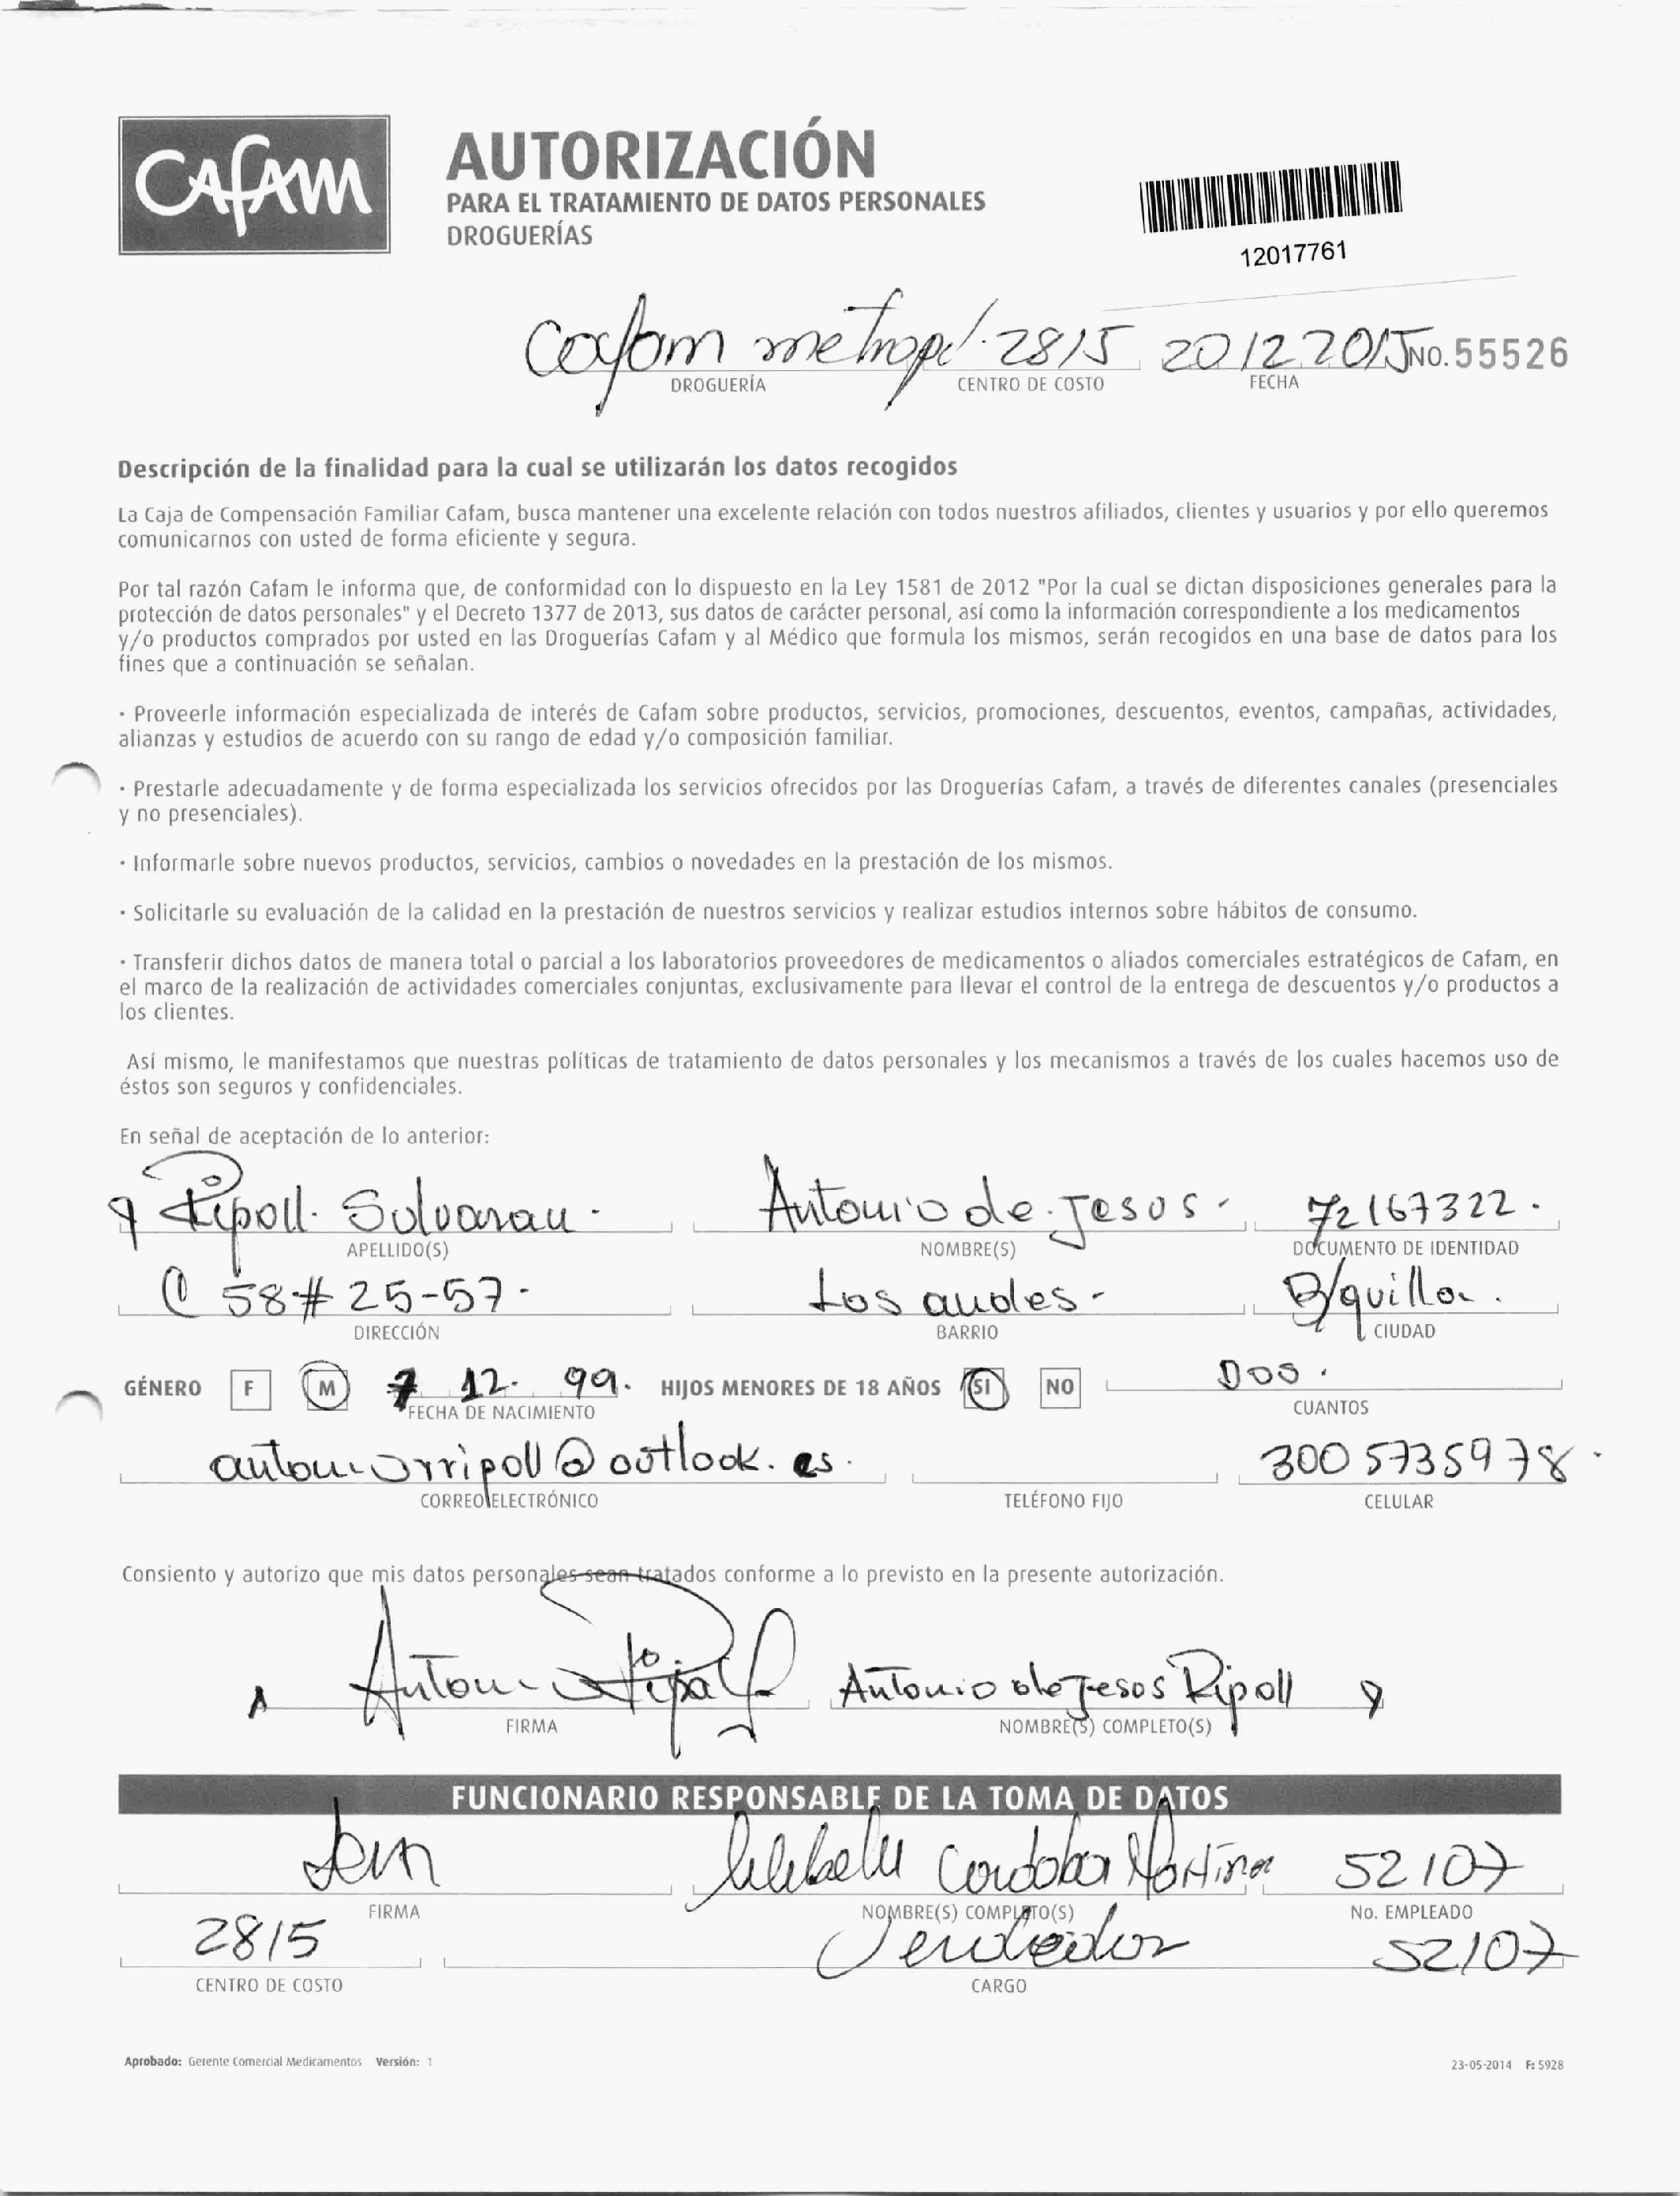 CAFAM
AUTORIZACIÓN
PARA EL TRATAMIENTO DE DATOS PERSONALES
DROGUERÍAS
12017761
Cafam metropol 2815 20 12 2015 NO. 55526
DROGUERÍA CENTRO DE COSTO FECHA
Descripción de la finalidad para la cual se utilizarán los datos recogidos
La Caja de Compensación Familiar Cafam, busca mantener una excelente relación con todos nuestros afiliados, clientes y usuarios y por ello queremos
comunicarnos con usted de forma eficiente y segura.
Por tal razón Cafam le informa que, de conformidad con lo dispuesto en la Ley 1581 de 2012 "Por la cual se dictan disposiciones generales para la
protección de datos personales" y el Decreto 1377 de 2013, sus datos de carácter personal, así como la información correspondiente a los medicamentos
y/o productos comprados por usted en las Droguerías Cafam y al Médico que formula los mismos, serán recogidos en una base de datos para los
fines que a continuación se señalan.
· Proveerle información especializada de interés de Cafam sobre productos, servicios, promociones, descuentos, eventos, campañas, actividades,
alianzas y estudios de acuerdo con su rango de edad y/o composición familiar.
· Prestarle adecuadamente y de forma especializada los servicios ofrecidos por las Droguerías Cafam, a través de diferentes canales (presenciales
y no presenciales).
· Informarle sobre nuevos productos, servicios, cambios o novedades en la prestación de los mismos.
· Solicitarle su evaluación de la calidad en la prestación de nuestros servicios y realizar estudios internos sobre hábitos de consumo.
· Transferir dichos datos de manera total o parcial a los laboratorios proveedores de medicamentos o aliados comerciales estratégicos de Cafam, en
el marco de la realización de actividades comerciales conjuntas, exclusivamente para llevar el control de la entrega de descuentos y/o productos a
los clientes.
Así mismo, le manifestamos que nuestras políticas de tratamiento de datos personales y los mecanismos a través de los cuales hacemos uso de
éstos son seguros y confidenciales.
En señal de aceptación de lo anterior:
Ripoll. Antonio de Jesus. 72167322.
APELLIDO(S) NOMBRE(S) DOCUMENTO DE IDENTIDAD
C 58 # 25-57. Los andes. B/quilla.
DIRECCIÓN BARRIO CIUDAD
GÉNERO F M 7 12. 99. HIJOS MENORES DE 18 AÑOS SI NO Dos.
FECHA DE NACIMIENTO CUANTOS
antoniorripoll@outlook.es. 300 5735978.
CORREO ELECTRÓNICO TELÉFONO FIJO CELULAR
Consiento y autorizo que mis datos personales sean tratados conforme a lo previsto en la presente autorización.
Antonio Ripoll Antonio de Jesos Ripoll
FIRMA NOMBRE(S) COMPLETO(S)
FUNCIONARIO RESPONSABLE DE LA TOMA DE DATOS
Cordoba 52107
FIRMA NOMBRE(S) COMPLETO(S) No. EMPLEADO
2815 Vendedor 52107
CENTRO DE COSTO CARGO
Aprobado: Gerente Comercial Medicamentos Versión: 1 23-05-2014 F: 5928